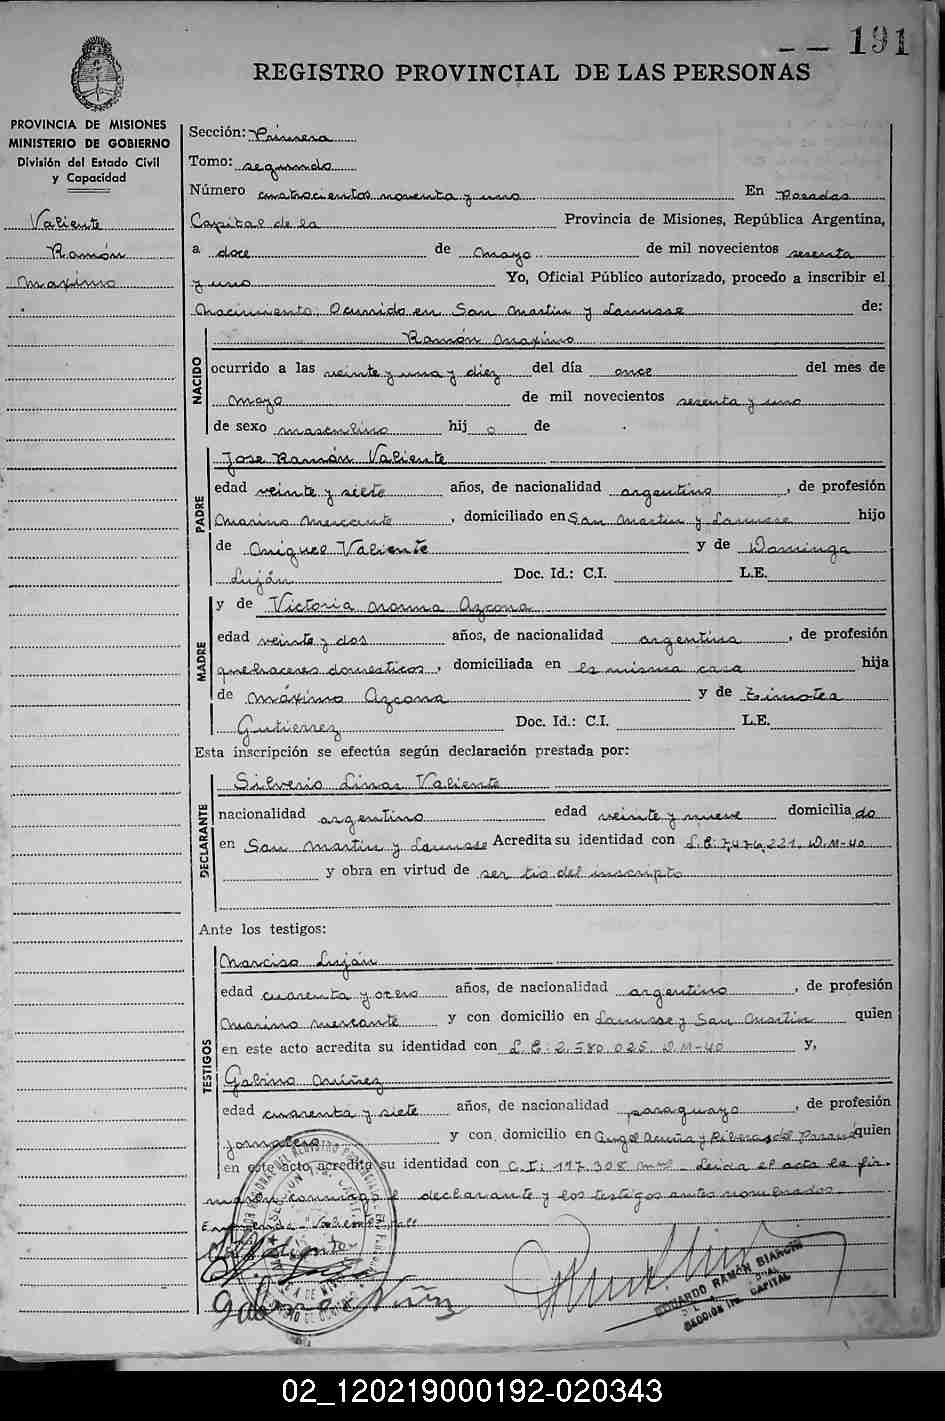 191
REGISTRO PROVINCIAL DE LAS PERSONAS
PROVINCIA DE MISIONES
MINISTERIO DE GOBIERNO
División del Estado Civil
y Capacidad
Valiente
Ramón
Maximo
Sección: Primera
Tomo: segundo
Número cuatrocientos noventa y uno En Posadas
Capital de la Provincia de Misiones, República Argentina,
a doce de Mayo de mil novecientos sesenta
y uno Yo, Oficial Público autorizado, procedo a inscribir el
Nacimiento. Ocurrido en San Martin y Lanusse de:
NACIDO
Ramón Maximo
ocurrido a las veinte y una y diez del día once del mes de
Mayo de mil novecientos sesenta y uno
de sexo masculino hij o de
PADRE
Jose Ramón Valiente
edad veinte y siete años, de nacionalidad argentino, de profesión
Marino Mercante, domiciliado en San Martin y Lanusse hijo
de Miguel Valiente y de Dominga
Luján Doc. Id.: C.I. L.E.
MADRE
y de Victoria Norma Azcona
edad veinte y dos años, de nacionalidad argentina, de profesión
quehaceres domesticos, domiciliada en la misma casa hija
de Máximo Azcona y de Timotea
Gutierrez Doc. Id.: C.I. L.E.
Esta inscripción se efectúa según declaración prestada por:
DECLARANTE
Silverio Linos Valiente
nacionalidad argentino edad veinte y nueve domicilia do
en San Martin y Lanusse Acredita su identidad con L.E. 7.476.221. D.M-40
y obra en virtud de ser tio del inscripto
Ante los testigos:
TESTIGOS
Narciso Luján
edad cuarenta y ocho años, de nacionalidad argentino, de profesión
Marino mercante y con domicilio en Lanusse y San Martin quien
en este acto acredita su identidad con L.E: 2.580.025. D.M-40 y,
Gabino Núñez
edad cuarenta y siete años, de nacionalidad paraguayo, de profesión
Jornalero y con domicilio en Angel Acuña y Riberas del Paraná quien
en este acto acredita su identidad con C.I: 117.308 Mnes. Leida el acta la fir-
maron conmigo el declarante y los testigos antes nombrados.
Enmienda "Valiente" vale
Valiente
Gabino Núñz
EDUARDO RAMÓN BIANCHI
SECCIÓN 1ra. CAPITAL
02_120219000192-020343